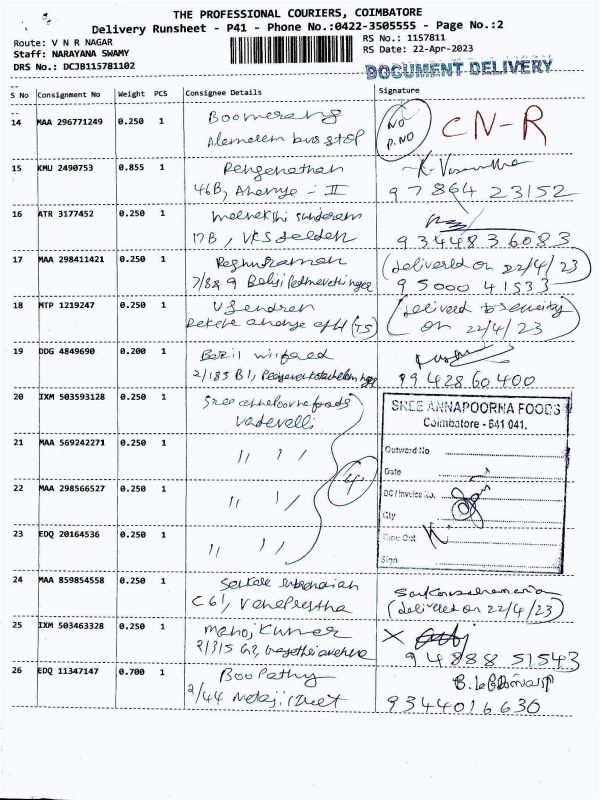 THE PROFESSIONAL COURIERS, COIMBATORE
Delivery Runsheet - P41 - Phone No.:0422-3505555 - Page No.:2
Route: V N R NAGAR
Staff: NARAYANA SWAMY
DRS No.: DCJB115781102
RS No.: 1157811
RS Date: 22-Apr-2023
DOCUMENT DELIVERY
S No Consignment No Weight PCS Consignee Details Signature
14 MAA 296771249 0.250 1 Boomerang
bus stop
NO
P.NO
CN-R
15 KMU 2490753 0.855 1
46B, - II
97864 23152
16 ATR 3177452 0.250 1
17B, VKS
93448 36083
17 MAA 298411421 0.250 1 Raghuraman
7/88 9 Balaji
(delivered on 22/4/23)
95000 41533
18 MTP 1219247 0.250 1
(TS)
on 22/4/23)
19 DDG 4849690 0.200 1
2/185 B1,
99428 60400
20 IXM 503593128 0.250 1 Sree annapoorna foods
Vadavalli
21 MAA 569242271 0.250 1 11 11
22 MAA 298566527 0.250 1 11 11
23 EDQ 20164536 0.250 1 11 11
4
SREE ANNAPOORNA FOODS
Coimbatore - 641 041.
Outward No
Date
DC / Invoice No.
Qty
Time Out
Sign
24 MAA 859854558 0.250 1
C61, Vanaprastha
(delivered on 22/4/23)
25 IXM 503463328 0.250 1 Manoj Kumar
2/315 G2,
X
94888 51543
26 EDQ 11347147 0.700 1 Boopathy
2/44 Netaji Street
9344016630